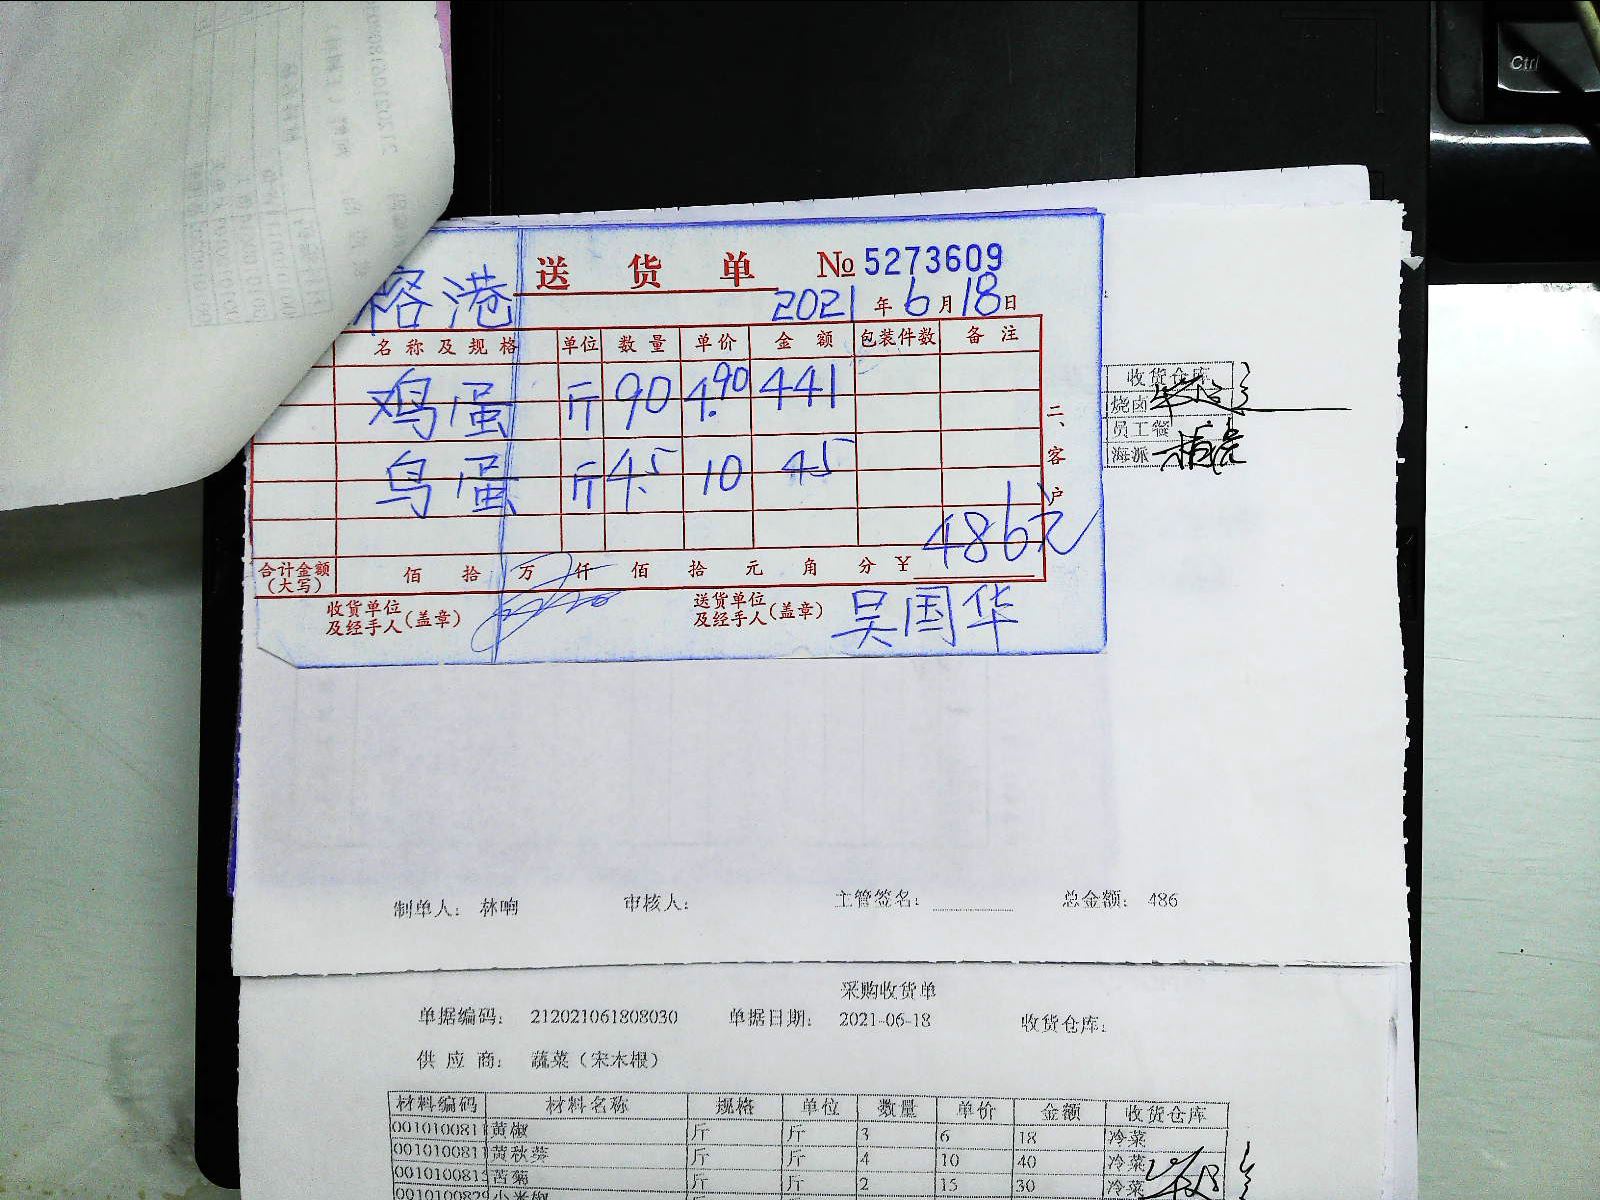 Ctrl
送货单 № 5273609
榕港
2021年6月18日
名称及规格 单位 数量 单价 金额 包装件数 备注
鸡蛋 斤 90 4.90 441
鸟蛋 斤 4.5 10 45
486元
合计金额(大写) 佰 拾 万 仟 佰 拾 元 角 分 ¥
二、客户
收货单位及经手人(盖章) 送货单位及经手人(盖章) 吴国华
收货仓库
烧卤
员工餐
海派
制单人: 林响 审核人: 主管签名: 总金额: 486
采购收货单
单据编码: 212021061808030 单据日期: 2021-06-18 收货仓库:
供应商: 蔬菜(宋木根)
材料编码 材料名称 规格 单位 数量 单价 金额 收货仓库
001010081 黄椒 斤 斤 3 6 18 冷菜
001010081 黄秋葵 斤 斤 4 10 40 冷菜
001010081 苦菊 斤 斤 2 15 30 冷菜
小米椒